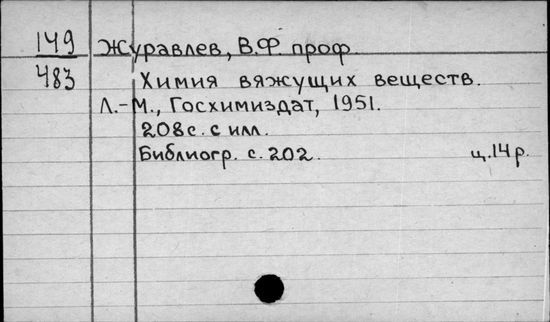 149 Журавлев, В.Ф. проф.
483 Химия вяжущих веществ.
Л.-М., Госхимиздат, 1951.
208с. с илл.
Библиогр. с. 202. ц.14р.